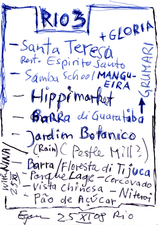 RIO 3
+ GLORIA
- Santa Teresa
Rest. Espirito Santo
- Samba School MANGUEIRA
- Hippimarket
- Barra di Guaratiba
- Jardien Botanico
(Rain) (Pestle Mill?)
- Barra/Floresta di Tijuca
- Parque Lage - Corcovado
- Vista Chinesa - Niteroi
- Pão de Açucar
→ GRUMARI
25 X 08 Rio